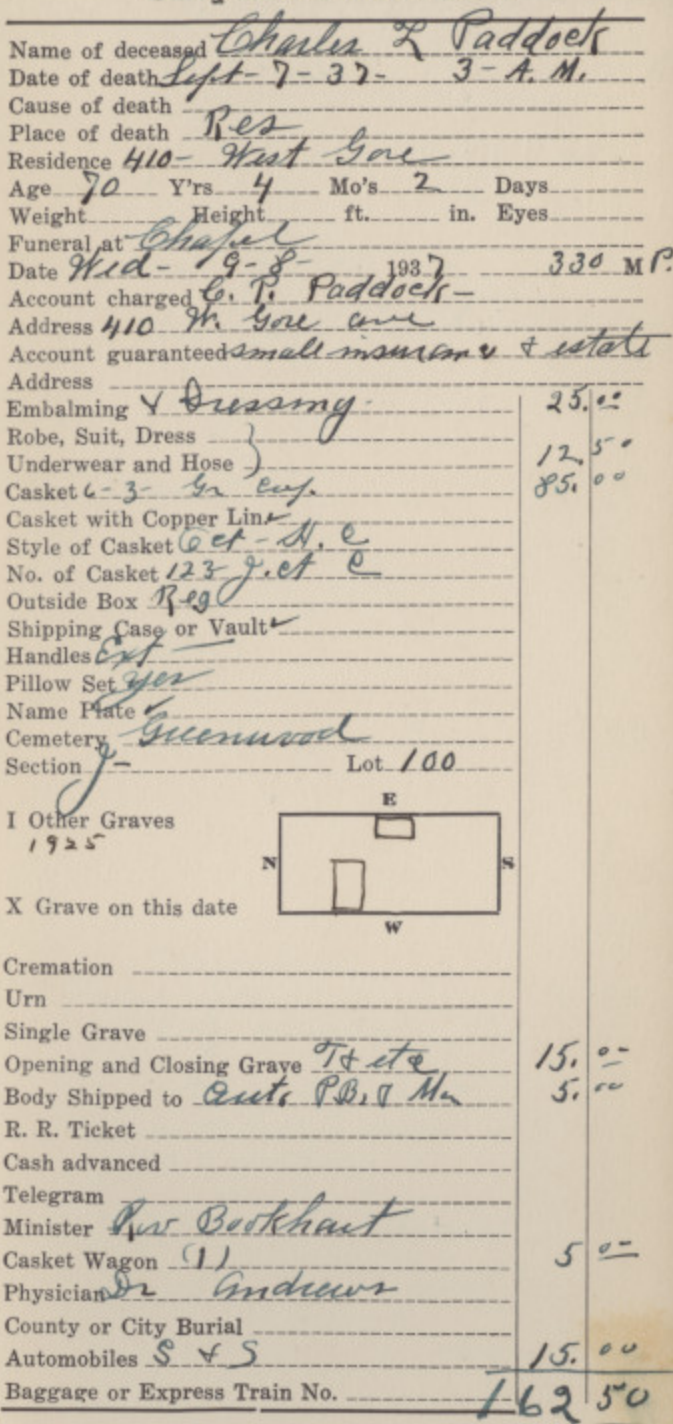 Name of deceased Charles L Paddock
Date of death Sept - 7 - 37 - 3 - A. M.
Cause of death
Place of death Res
Residence 410 - West Gore
Age 70 Y'rs 4 Mo's 2 Days
Weight Height ft. in. Eyes
Funeral at Chapel
Date Wed - 9 - 8 - 1937 330 M P.
Account charged C. P. Paddock -
Address 410 W. Gore ave
Account guaranteed small insurance & estate
Address
Embalming & Dressing 25.00
Robe, Suit, Dress
Underwear and Hose 12 50
Casket 6 - 3 - Gr 85.00
Casket with Copper Line
Style of Casket Oct -
No. of Casket 123
Outside Box Reg
Shipping Case or Vault
Handles Ext
Pillow Set yes
Name Plate
Cemetery Greenwood
Section J - Lot 100
E
I Other Graves
1925
N S
X Grave on this date
W
Cremation
Urn
Single Grave
Opening and Closing Grave 15.00
Body Shipped to 5.00
R. R. Ticket
Cash advanced
Telegram
Minister Rev Bookhart
Casket Wagon (1) 5 00
Physician Dr Andrews
County or City Burial
Automobiles S & S 15.00
Baggage or Express Train No. 162 50